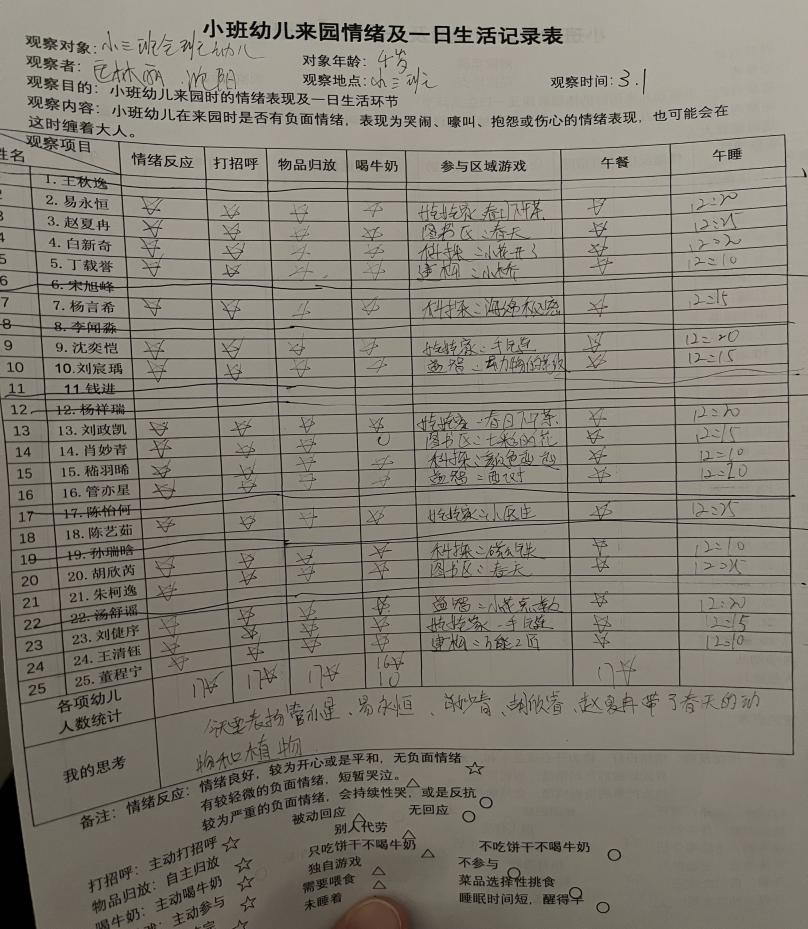 小班幼儿来园情绪及一日生活记录表
观察对象：小三班全班幼儿 对象年龄：4岁
观察者： 观察地点：小三班 观察时间：3.1
观察目的：小班幼儿来园时的情绪表现及一日生活环节
观察内容：小班幼儿在来园时是否有负面情绪，表现为哭闹、嚎叫、抱怨或伤心的情绪表现，也可能会在
这时缠着大人。
观察项目
姓名 情绪反应 打招呼 物品归放 喝牛奶 参与区域游戏 午餐 午睡
1. 王秋逸
2. 易永恒 ☆ ☆ ☆ ☆ ☆ 12:20
3. 赵夏冉 ☆ ☆ ☆ ☆ 图书区：春天 ☆ 12:25
4. 白新奇 ☆ ☆ ☆ ☆ 科探：小花开了 ☆ 12:20
5. 丁载誉 ☆ ☆ ☆ ☆ 建构：小桥 ☆ 12:10
6 6. 宋旭峰
7 7. 杨言希 ☆ ☆ ☆ ☆ 科探： ☆ 12:15
8 8. 李闻淼
9 9. 沈奕恺 ☆ ☆ ☆ ☆ ☆ 12:20
10 10. 刘宸瑀 ☆ ☆ ☆ ☆ 益智： ☆ 12:15
11 11. 钱进
12 12. 杨祥瑞
13 13. 刘政凯 ☆ ☆ ☆ ☆ ☆ 12:20
14 14. 肖妙青 ☆ ☆ ☆ ○ 图书区：七彩的花 ☆ 12:15
15 15. 嵇羽晞 ☆ ☆ ☆ ☆ 科探：颜色变变 ☆ 12:10
16 16. 管亦星 ☆ ☆ ☆ ☆ 益智：西对 ☆ 12:20
17 17. 陈怡何
18 18. 陈艺茹 ☆ ☆ ☆ ☆ 小医生 ☆ 12:25
19 19. 孙瑞晗
20 20. 胡欣芮 ☆ ☆ ☆ ☆ 科探：磁铁 ☆ 12:10
21 21. 朱柯逸 ☆ ☆ ☆ ☆ 图书区：春天 ☆
22 22. 汤舒谣
23 23. 刘倢序 ☆ ☆ ☆ ☆ 益智：小花点数 ☆ 12:20
24 24. 王清钰 ☆ ☆ ☆ ☆ ☆ 12:15
25 25. 董程宁 ☆ ☆ ☆ ☆ 建构：万能工匠 ☆ 12:10
各项幼儿
人数统计 17☆ 17☆ 17☆ 16☆ 1○ 17☆
我的思考 今天要表扬管亦星、易永恒、肖妙青、胡欣睿、赵夏冉带了春天的动
物和植物
备注：情绪反应：情绪良好，较为开心或是平和，无负面情绪 ☆
有较轻微的负面情绪，短暂哭泣。 △
较为严重的负面情绪，会持续性哭，或是反抗 ○
打招呼：主动打招呼 ☆ 被动回应 △ 无回应 ○
物品归放：自主归放 ☆ 别人代劳 △
喝牛奶：主动喝牛奶 ☆ 只吃饼干不喝牛奶 △ 不吃饼干不喝牛奶 ○
主动参与 ☆ 独自游戏 △ 不参与 ○
☆ 需要喂食 △ 菜品选择性挑食 ○
未睡着 睡眠时间短，醒得早 ○